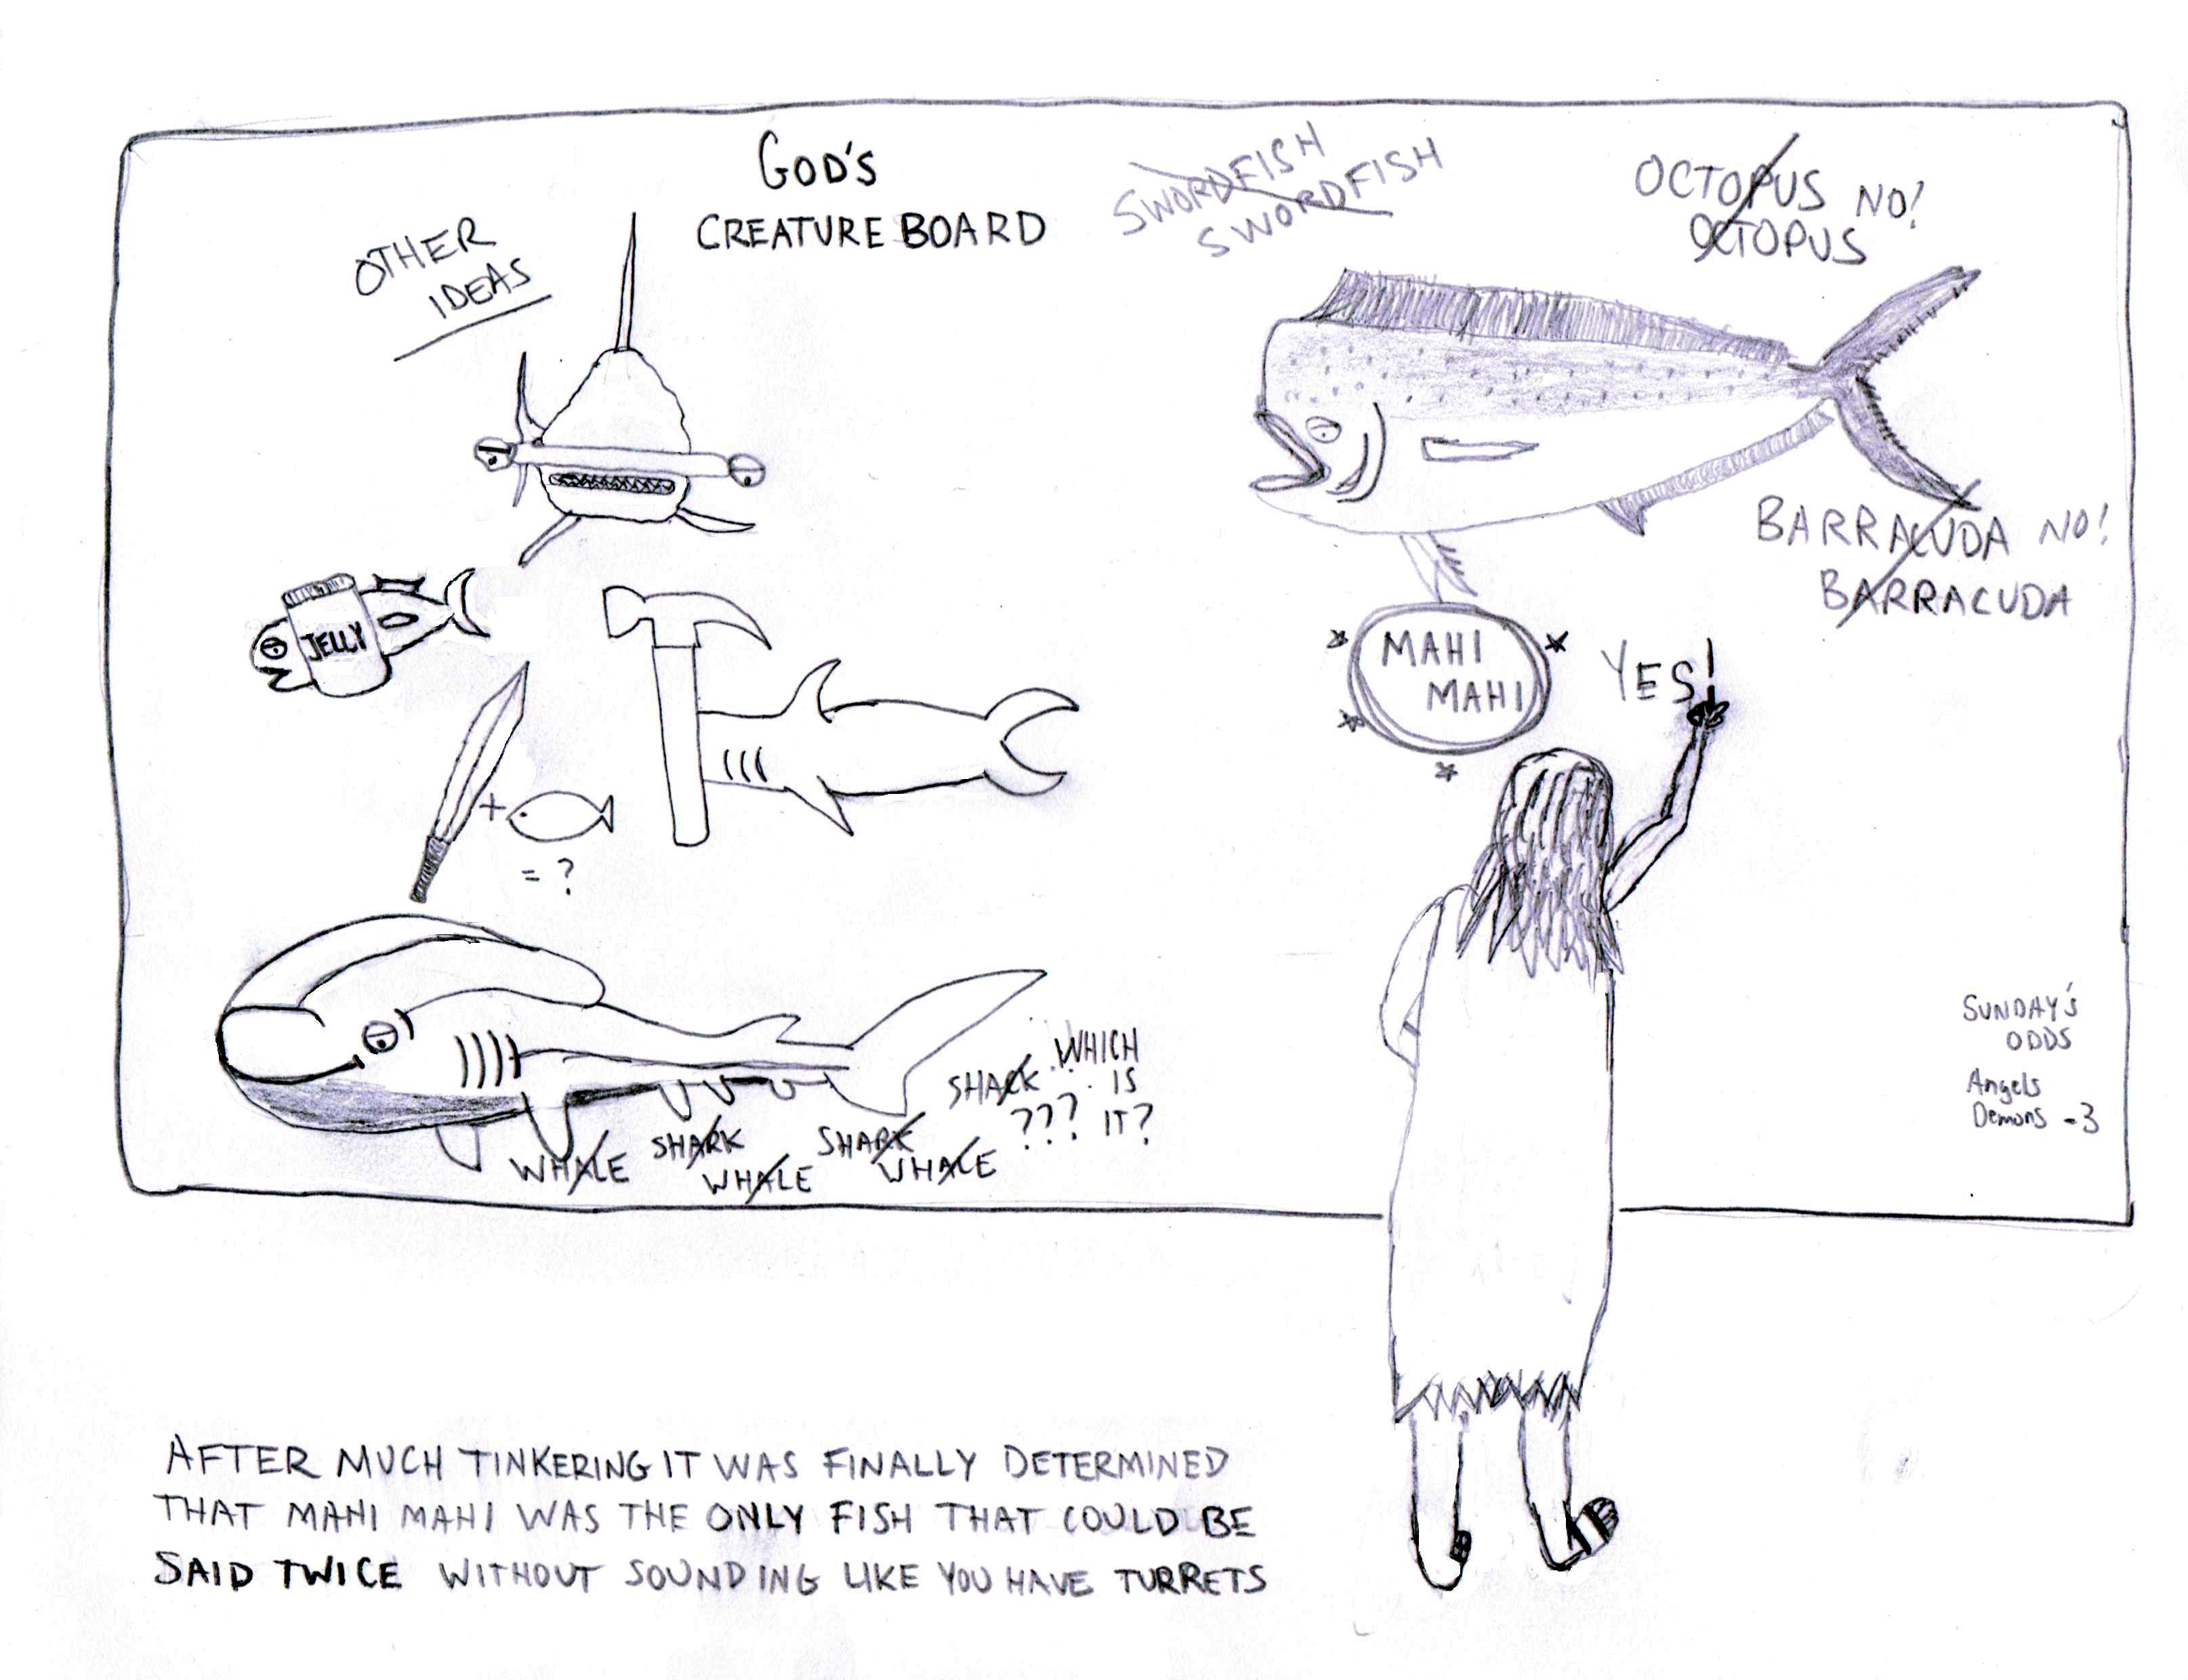 GOD'S
CREATURE BOARD
OTHER
IDEAS
SWORDFISH
SWORDFISH
OCTOPUS NO!
OCTOPUS
BARRACUDA NO!
BARRACUDA
JELLY
MAHI
MAHI
YES!
+
= ?
WHALE
SHARK
WHALE
SHARK
WHALE
SHARK
???
WHICH
IS
IT?
SUNDAY'S
ODDS
Angels
Demons -3
AFTER MUCH TINKERING IT WAS FINALLY DETERMINED
THAT MAHI MAHI WAS THE ONLY FISH THAT COULD BE
SAID TWICE WITHOUT SOUNDING LIKE YOU HAVE TURRETS